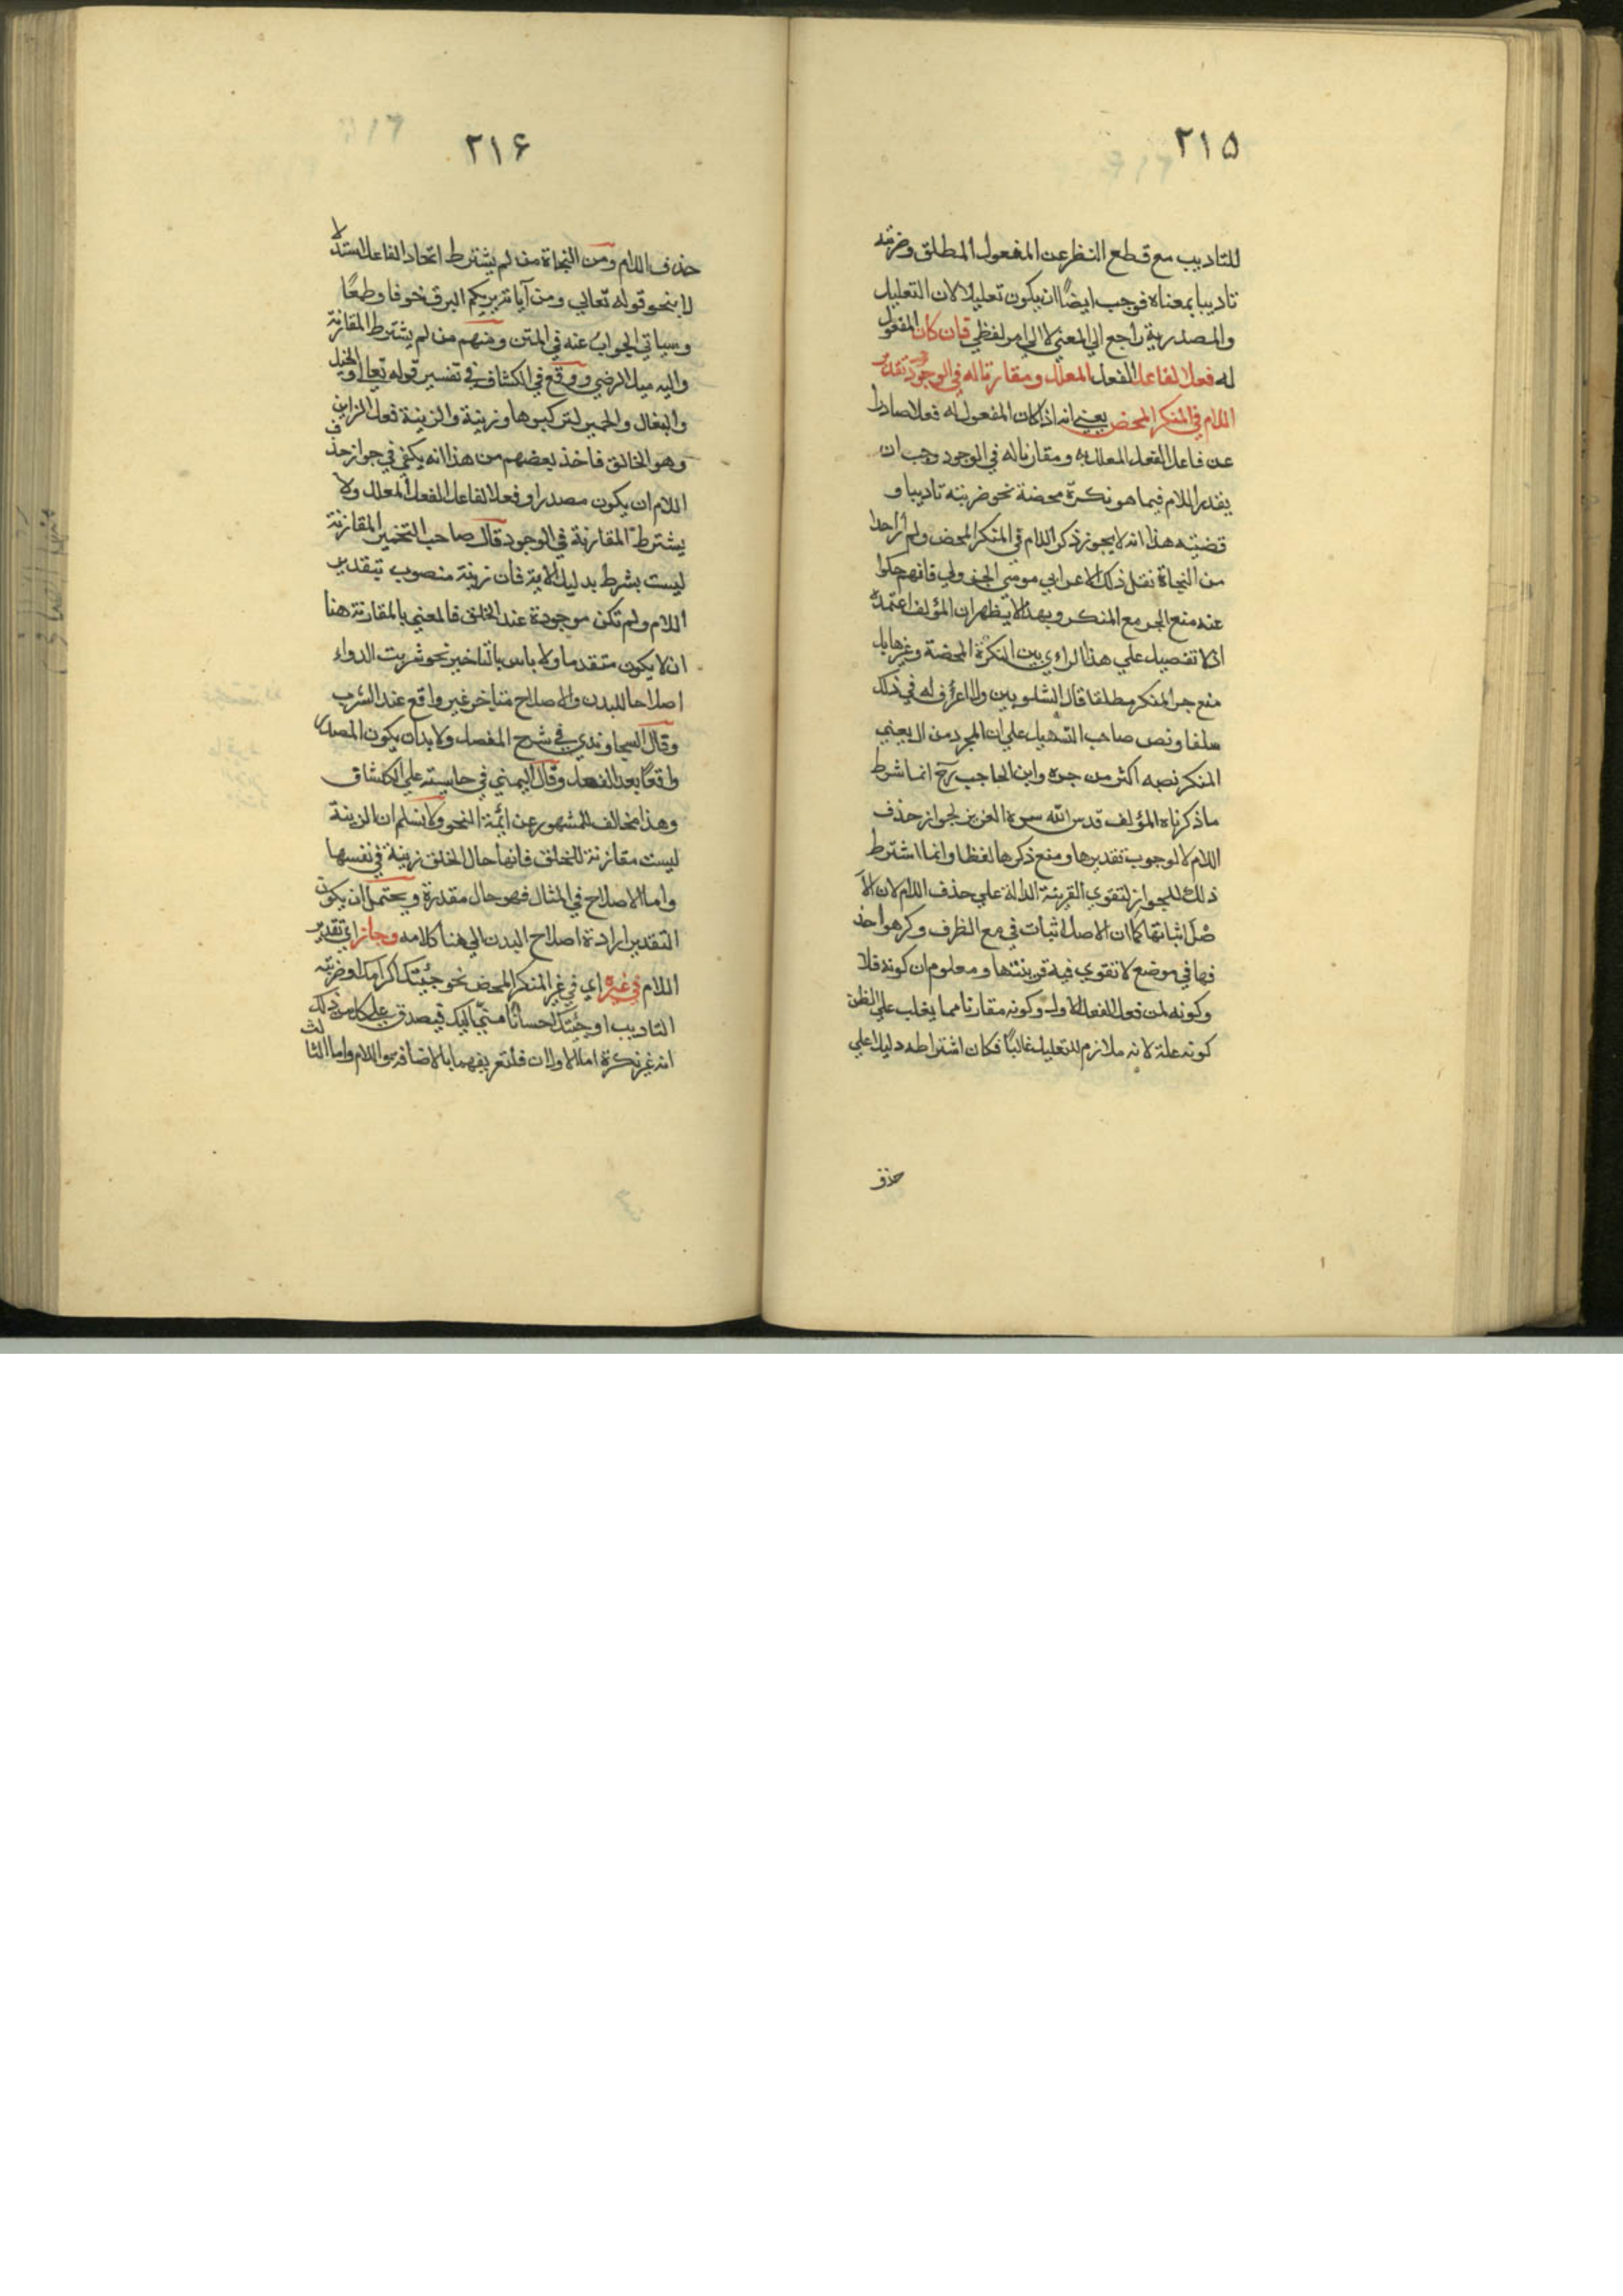 ٢١٥
للتاديب مع قطع النظر عن المفعول المطلق وضربته
تاديبا بمعناه فوجب ايضًا ان يكون تعليلا لان التعليل
والمصدرية راجع الي المعني لا الي امر لفظي فان كان المفعول
له فعلا لفاعل الفعل المعلل ومقارنا له في الوجود تقدير
اللام في المنكر المحض يعني انه اذا كان المفعول له فعلا صادرا
عن فاعل الفعل المعلل به ومقارنا له في الوجود وجب ان
يقدر اللام فيما هو نكرة محضة نحو ضربته تاديبا و
قضيته هذا انه لا يجوز ذكر اللام في المنكر المحض ولم أر احدا
من النحاة نقل ذلك الا عن ابي موسي الجزولي فانهم حكوا
عنه منع الجر مع المنكر وبهذا لا يظهر ان المؤلف اعتمده
اذ لا تفصيل علي هذا الراي بين النكرة المحضة وغيرها بل
منع جر المنكر مطلقا قال الشلوبين ولا اعرف له في ذلك
سلفا ونص صاحب التسهيل علي ان المجرد من ال يعني
المنكر نصبه اكثر من جره وابن الحاجب رح انما شرط
ما ذكرناه المؤلف قدس الله سره العزيز لجواز حذف
اللام لا لوجوب تقديرها ومنع ذكرها لفظا وانما اشترط
ذلك للجواز لتقوي القرينة الدالة علي حذف اللام لان الا
صل اثباتها كما ان الاصل اثبات في مع الظرف وكرهوا حذ
فها في موضع لا تقوي فيه قرينتها ومعلوم ان كونه فعلا
وكونه لمن فعل الفعل الاول وكونه مقارنا مما يغلب علي الظن
كونه علة لانه ملازم للتعليل غالبًا فكان اشتراطه دليلا علي
حذف
٢١۶
حذف اللام ومن النحاة من لم يشترط اتحاد الفاعل استدلا
لا بنحو قوله تعالي ومن آياته يريكم البرق خوفا وطمعًا
وسياتي الجواب عنه في المتن ومنهم من لم يشترط المقارنة
واليه ميل الرضي ووقع في الكشاف في تفسير قوله تعالي والخيل
والبغال والحمير لتركبوها وزينة والزينة فعل الزاين
وهو الخالق فاخذ بعضهم من هذا انه يكفي في جواز حذف
اللام ان يكون مصدرا وفعلا لفاعل الفعل المعلل ولا
يشترط المقارنة في الوجود قال صاحب التخمير المقارنة
ليست بشرط بدليل الاية فان زينة منصوب بتقدير
اللام ولم تكن موجودة عند الخلق فالمعني بالمقارنة هنا
ان لا يكون متقدما ولا باس بالتاخير نحو شربت الدواء
اصلاحا للبدن والاصلاح متاخر غير واقع عند الشرب
وقال السجاوندي في شرح المفصل ولا بد ان يكون المصدر
واقعًا بعد الفعل وقال اليمني في حاشيته علي الكشاف
وهذا مخالف للمشهور عن ائمة النحو ولا نسلم ان الزينة
ليست مقارنة للخلق فانها حال الخلق زينة في نفسها
واما الاصلاح في المثال فهو حال مقدرة ويحتمل ان يكون
التقدير ارادة اصلاح البدن الي هنا كلامه وجاز اي تقدير
اللام في غيره اي في غير المنكر المحض نحو جئتك اكرامك وضربته
التاديب او جئتك احسانا مني اليك فيصدق علي كل من ذلك
انه غير نكرة اما الاولان فلتعريفهما بالاضافة واللام واما الثالث